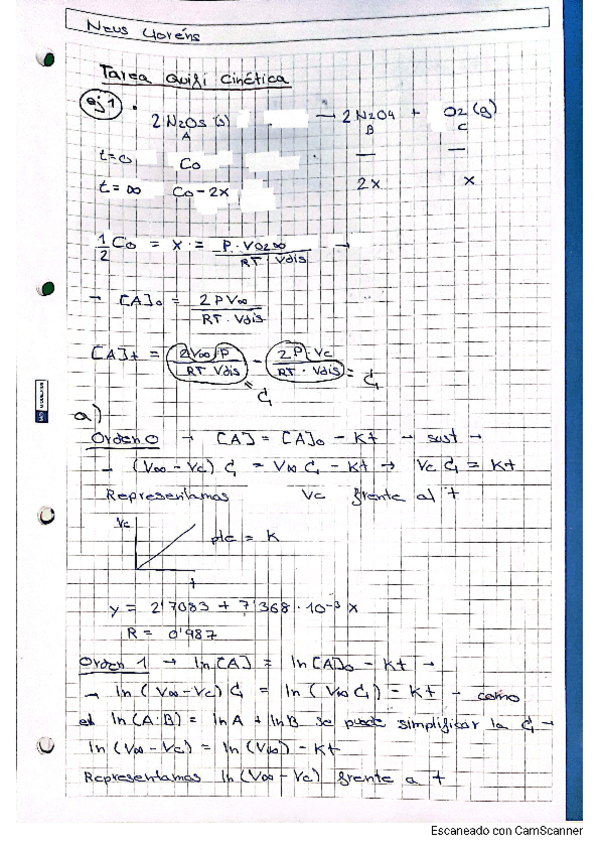 Neus Lloréns
Tarea Quifi cinética
ej 1
2 N2O5 (s) → 2 N2O4 + O2 (g)
A B C
t=0 Co — —
t=∞ Co-2x 2x x
1/2 Co = x = P·VO2∞ / RT·Vdis →
→ [A]o = 2PV∞ / RT·Vdis
[A]t = 2V∞P / RT Vdis - 2P·Vc / RT·Vdis = C1
= C1
a)
Orden 0 → [A] = [A]o - Kt → sust →
→ (V∞ - Vc) C1 = V∞ C1 - Kt → Vc C1 = Kt
Representamos Vc frente al t
Vc
pte = K
t
y = 2'7083 + 7'368·10⁻³ x
R = 0'987
Orden 1 → ln[A] = ln[A]o - Kt →
→ ln (V∞-Vc) C1 = ln (V∞ C1) - Kt - como
el ln(A·B) = lnA + lnB se puede simplificar la C1 →
ln (V∞-Vc) = ln(V∞) - Kt
Representamos ln(V∞-Vc) frente a t
Escaneado con CamScanner